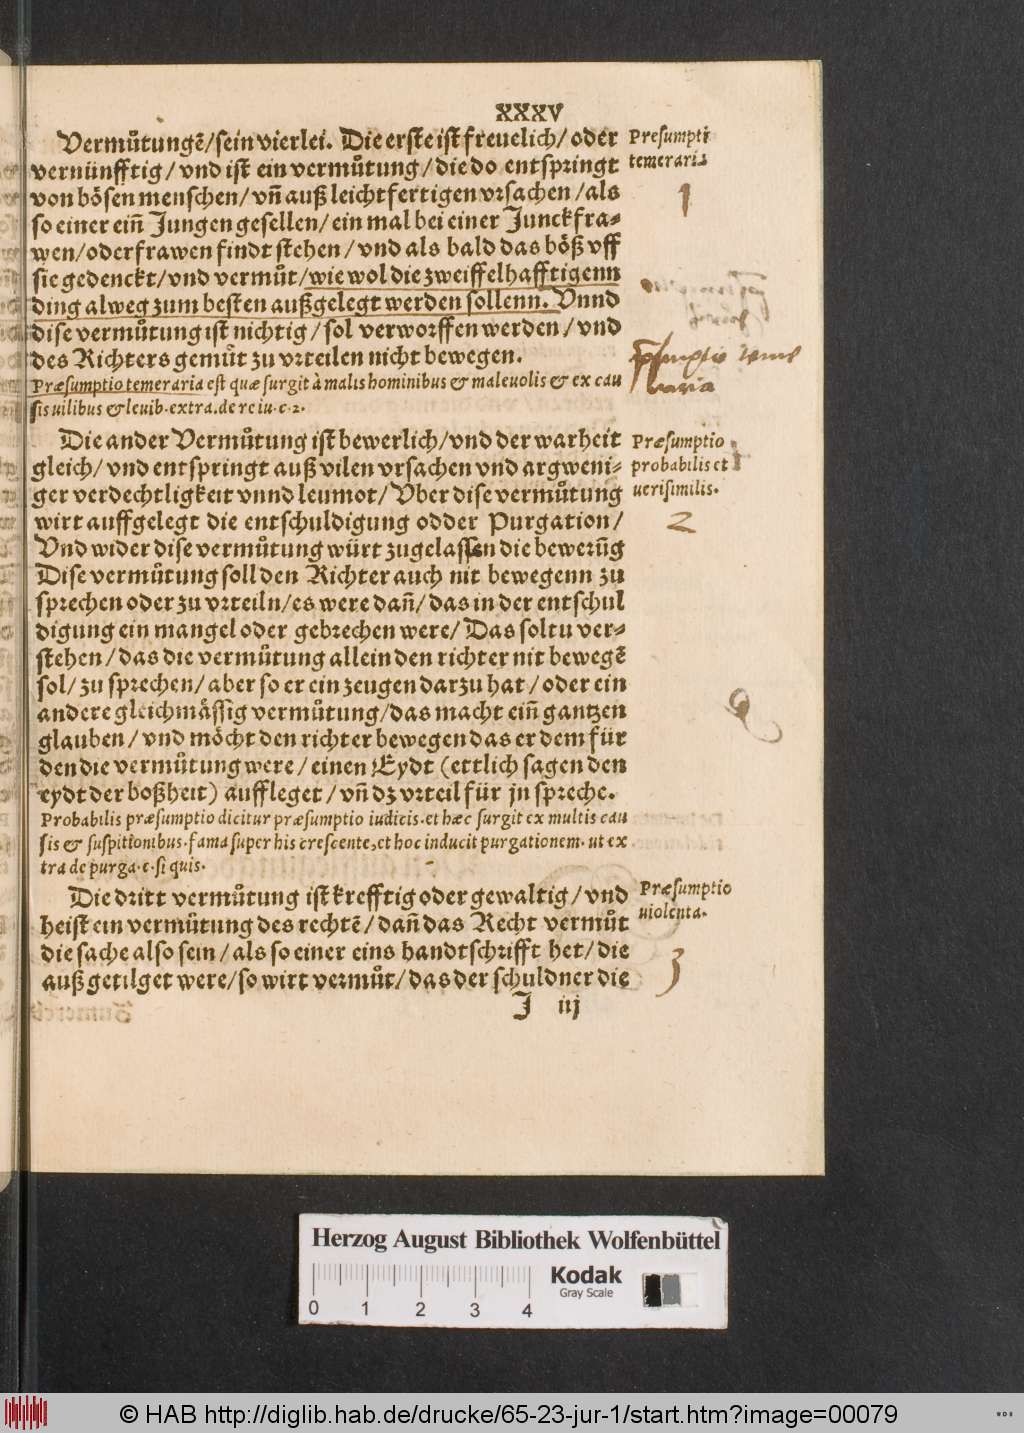 XXXV
Vermůtungẽ/sein vierlei. Die erste ist freuelich/oder
vernünfftig/vnd ist ein vermůtung/die do entspringt
von bösen menschen/vñ auß leichtfertigen vrsachen/als
so einer eiñ Jungen gesellen/ein mal bei einer Junckfra-
wen/oder frawen findt stehen/vnd als bald das böß vff
sie gedenckt/vnd vermůt/wie wol die zweiffelhafftigenn
ding alweg zum besten außgelegt werden sollenn. Vnnd
dise vermůtung ist nichtig/sol verworffen werden/vnd
des Richters gemůt zu vrteilen nicht bewegen.
Præsumptio temeraria est quæ surgit à malis hominibus & maleuolis & ex cau
sis uilibus & leuib. extra. de re iu. c. 2.
Presumptio
temeraria
1
præsumptio teme
raria
Die ander Vermůtung ist bewerlich/vnd der warheit
gleich/vnd entspringt auß vilen vrsachen vnd argweni-
ger verdechtligkeit vnnd leumot/Vber dise vermůtung
wirt auffgelegt die entschuldigung odder Purgation/
Vnd wider dise vermůtung würt zugelassen die bewerũg
Dise vermůtung soll den Richter auch nit bewegenn zu
sprechen oder zu vrteiln/es were dañ/das in der entschul
digung ein mangel oder gebrechen were/Das soltu ver-
stehen/das die vermůtung allein den richter nit bewegẽ
sol/zu sprechen/aber so er ein zeugen darzu hat/oder ein
andere gleichmässig vermůtung/das macht eiñ gantzen
glauben/vnd möcht den richter bewegen das er dem für
den die vermůtung were/einen Eydt (ettlich sagen den
eydt der boßheit) auffleget/vñ dz vrteil für jn spreche.
Probabilis præsumptio dicitur præsumptio iudicis. et hæc surgit ex multis cau
sis & suspitionibus. fama super his crescente, et hoc inducit purgationem. ut ex
tra de purga. c. si quis.
Præsumptio
probabilis et
uerisimilis.
2
Die dritt vermůtung ist krefftig oder gewaltig/vnd
heist ein vermůtung des rechtẽ/dañ das Recht vermůt
die sache also sein/als so einer eins handtschrifft het/die
auß getilget were/so wirt vermůt/das der schuldner die
Præsumptio
uiolenta.
3
J iij
Herzog August Bibliothek Wolfenbüttel
Kodak
Gray Scale
0 1 2 3 4
© HAB http://diglib.hab.de/drucke/65-23-jur-1/start.htm?image=00079